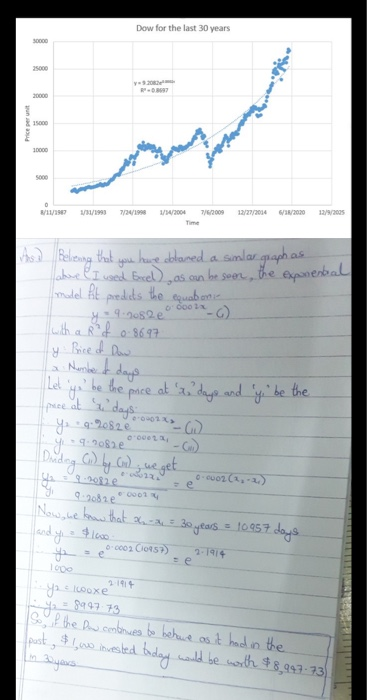 Dow for the last 30 years
30000
25000
20000
15000
10000
5000
0
Price per unit
8/11/1987 1/31/1993 7/24/1998 1/14/2004 7/6/2009 12/27/2014 6/18/2020 12/9/2025
Time
R² = 0.8697
Ans) Believing that you have obtained a similar graph as
above (I used Excel), as can be seen, the exponential
model fit predicts the equation:-
y = 9.2082e^0.0002x -(i)
with a R² of 0.8697
y: Price of Dow
x: Number of days
Let 'y₂' be the price at 'x₂' days and 'y₁' be the
price at 'x₁' days:
y₂ = 9.2082e^0.0002x₂ -(ii)
y₁ = 9.2082e^0.0002x₁ -(iii)
Dividing (ii) by (iii), we get
y₂/y₁ = 9.2082e^0.0002x₂ / 9.2082e^0.0002x₁ = e^0.0002(x₂-x₁)
Now, we know that x₂-x₁ = 30 years = 10957 days
and y₁ = $1000
∴ y₂/1000 = e^0.0002(10957) = e^2.1914
∴ y₂ = 1000xe^2.1914
∴ y₂ = 8947.73
So, if the Dow continues to behave as it had in the
past, $1,000 invested today would be worth $8,947.73
in 30 years